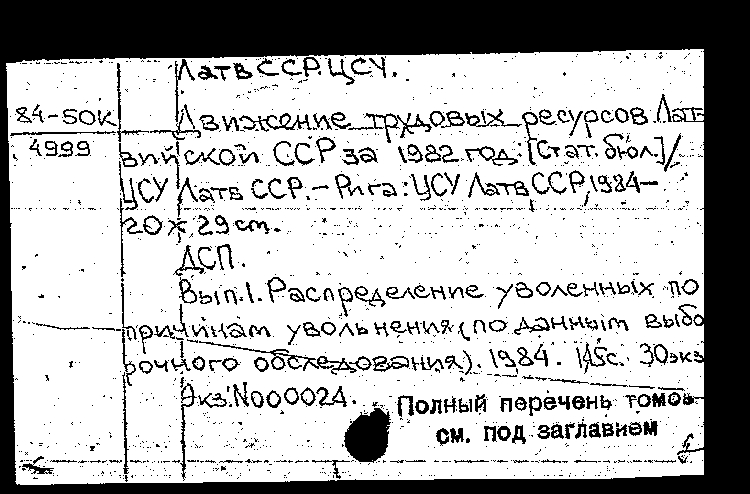 Латв ССР. ЦСУ.
84-5ОК
4999
Движение трудовых ресурсов Латв
вийской ССР за 1982 год: [Стат. бюл.]/
ЦСУ Латв ССР. - Рига: ЦСУ Латв ССР, 1984-
20 х 29 см.
ДСП.
Вып. 1. Распределение уволенных по
причинам увольнения (по данным выбо
рочного обследования). 1984. 145с. 30 экз
Экз. N000024.
Полный перечень томов
см. под заглавием